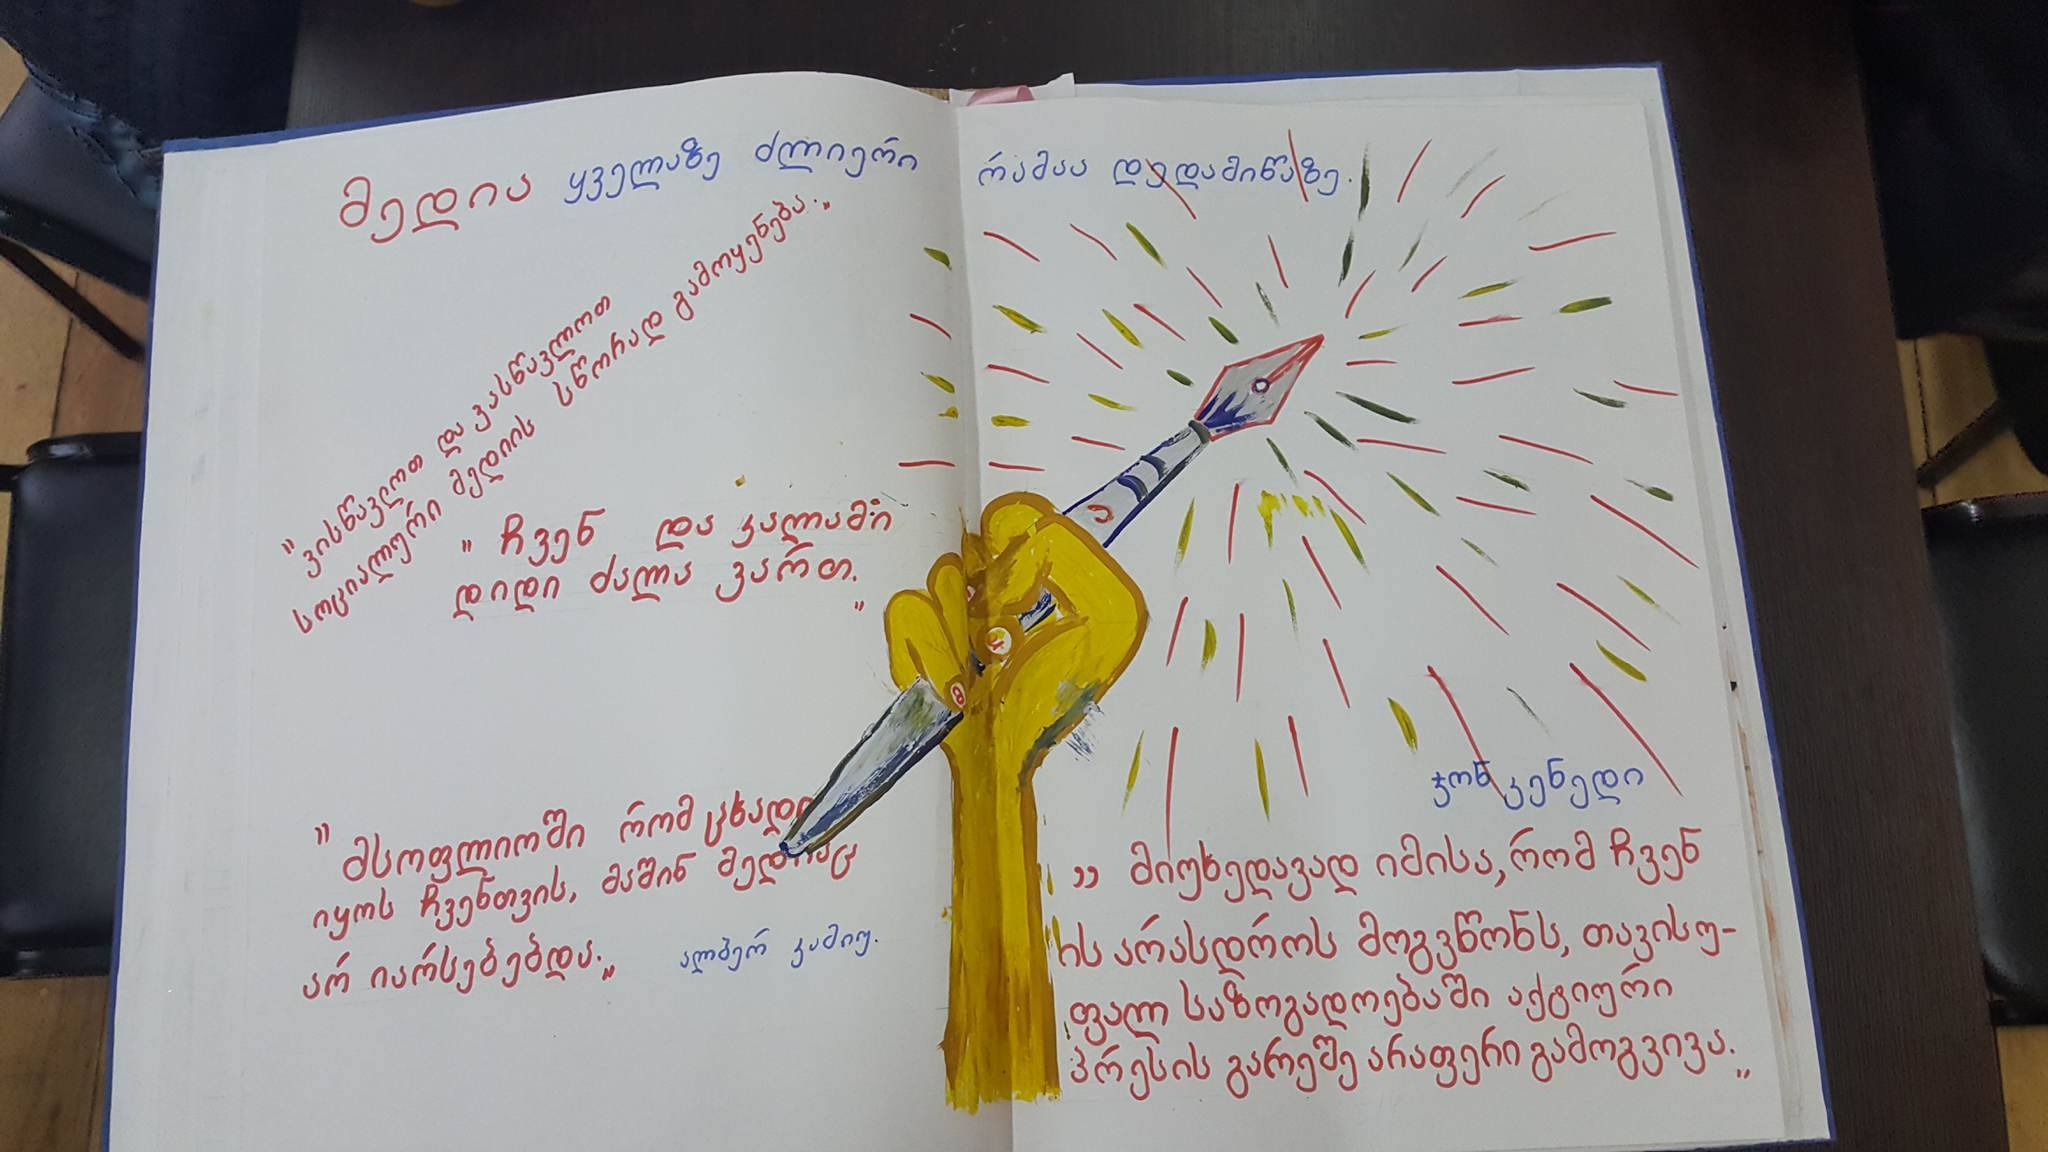 მედია ყველაზე ძლიერი რამაა დედამიწაზე.
"ვისწავლოთ და ვასწავლოთ
სოციალური მედიის სწორად გამოყენება."
"ჩვენ და კალამი
დიდი ძალა ვართ.
"
"მსოფლიოში რომ ცხადი
იყოს ჩვენთვის, მაშინ მედიაც
არ იარსებებდა."
ალბერ კამიუ.
ჯონ კენედი
„ მიუხედავად იმისა, რომ ჩვენ
ის არასდროს მოგვწონს, თავისუ-
ფალ საზოგადოებაში აქტიური
პრესის გარეშე არაფერი გამოგვივა."